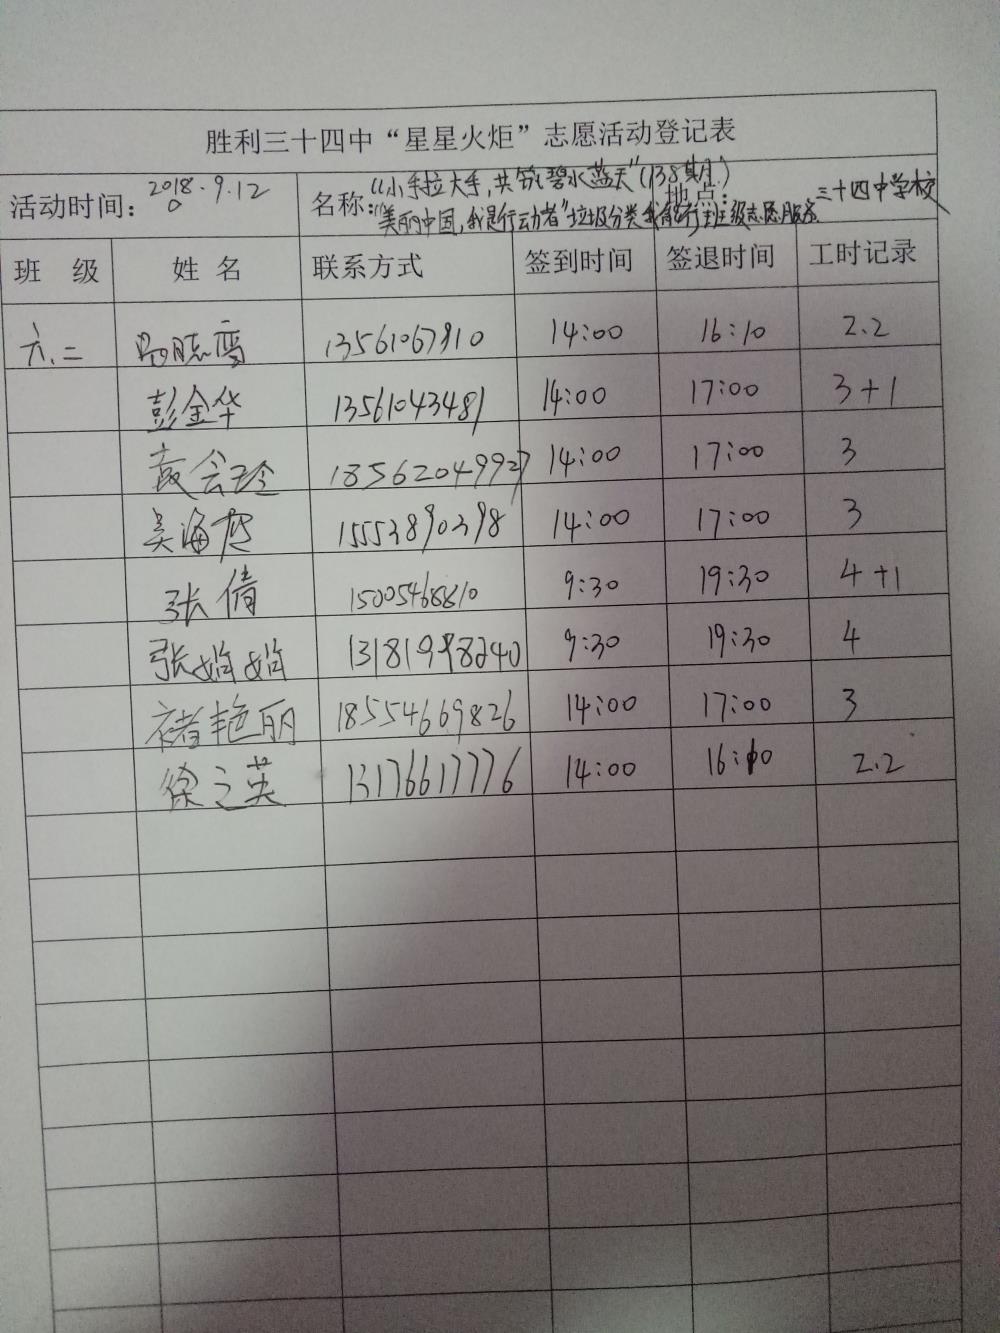 胜利三十四中“星星火炬”志愿活动登记表
活动时间：2018.9.12 名称：“小手拉大手，共筑碧水蓝天”（138期） 地点：三十四中学校
“美丽中国，我是行动者”垃圾分类我先行班级志愿服务
班 级 姓 名 联系方式 签到时间 签退时间 工时记录
六.二 13561067910 14:00 16:10 2.2
彭金华 13561043481 14:00 17:00 3+1
会玲 18562049927 14:00 17:00 3
吴海 15553890398 14:00 17:00 3
张倩 15005468810 9:30 19:30 4+1
张娟娟 13181998240 9:30 19:30 4
褚艳丽 18554669826 14:00 17:00 3
徐之英 13176617776 14:00 16:10 2.2